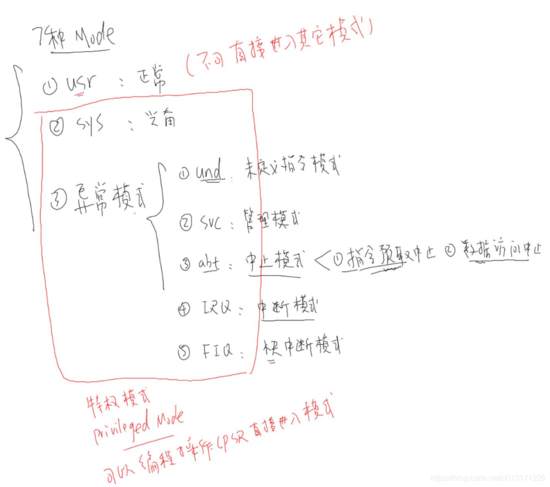 7种 Mode
① usr : 正常 (不可直接进入其它模式)
② sys :
③ 异常模式
① und : 未定义指令模式
② SVC : 管理模式
③ abt : 中止模式 < ① 指令预取中止 ② 数据访问中止
④ IRQ : 中断模式
⑤ FIQ : 快中断模式
特权模式
privileged Mode
可以编程操作CPSR直接进入模式